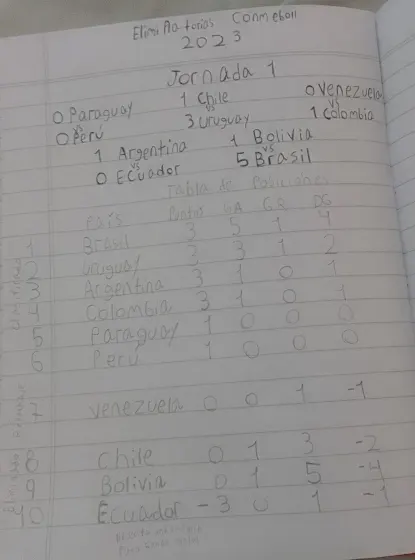 Eliminatorias Conmeboll
2023
Jornada 1
0 Paraguay 1 Chile 0 Venezuela
vs vs vs
0 Perú 3 uruguay 1 Colombia
1 Argentina 1 Bolivia
vs vs
0 Ecuador 5 Brasil
Tabla de Posiciones
País Puntos GA GR DG
1 Brasil 3 5 1 4
2 uruguay 3 3 1 2
3 Argentina 3 1 0 1
4 Colombia 3 1 0 1
5 Paraguay 1 0 0 0
6 Perú 1 0 0 0
7 venezuela 0 0 1 -1
8 Chile 0 1 3 -2
9 Bolivia 0 1 5 -4
10 Ecuador -3 0 1 -1